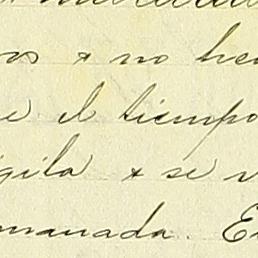 os & no he
e el tiempo
gila & se v
manada. E